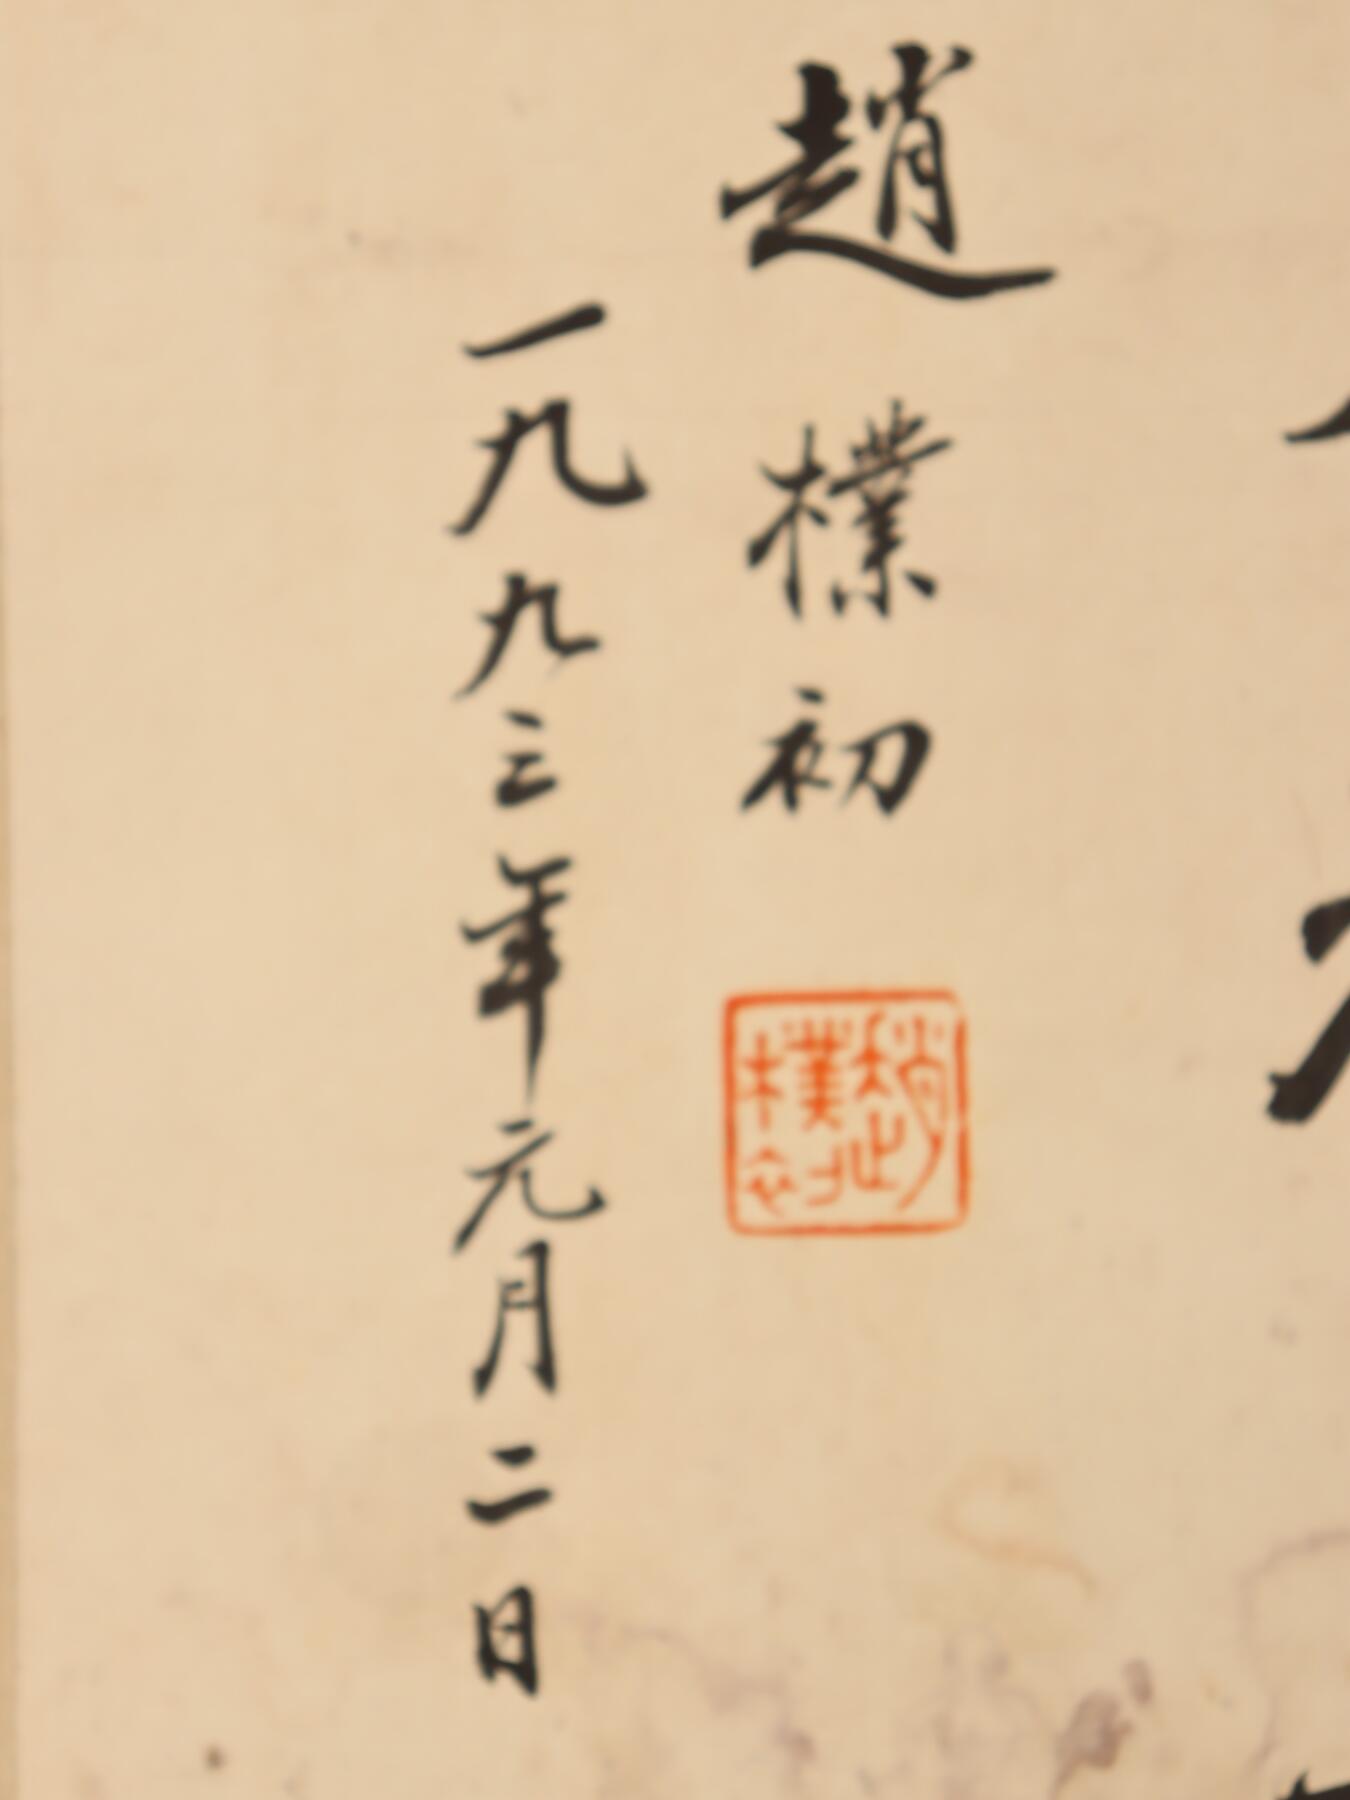 趙樸初
一九九三年元月二日
趙樸初